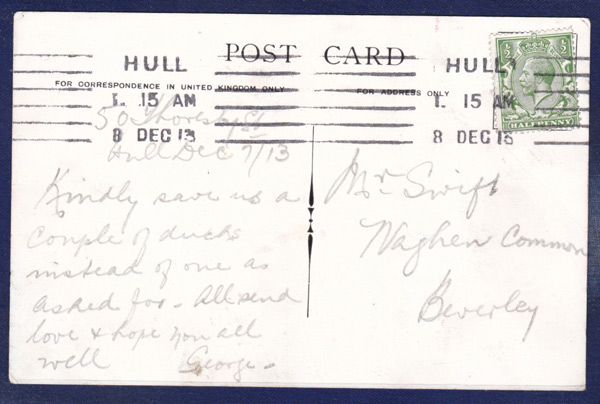 POST CARD
HULL
1. 15 AM
8 DEC 13
HULL
1. 15 AM
8 DEC 13
½ ½
HALFPENNY
FOR CORRESPONDENCE IN UNITED KINGDOM ONLY
FOR ADDRESS ONLY
50 Thoresby St
Hull Dec 7/13
Kindly save us a
couple of ducks
instead of one as
asked for - All send
love & hope you all
well George -
Mr. Swift
Waghen Common
Beverley